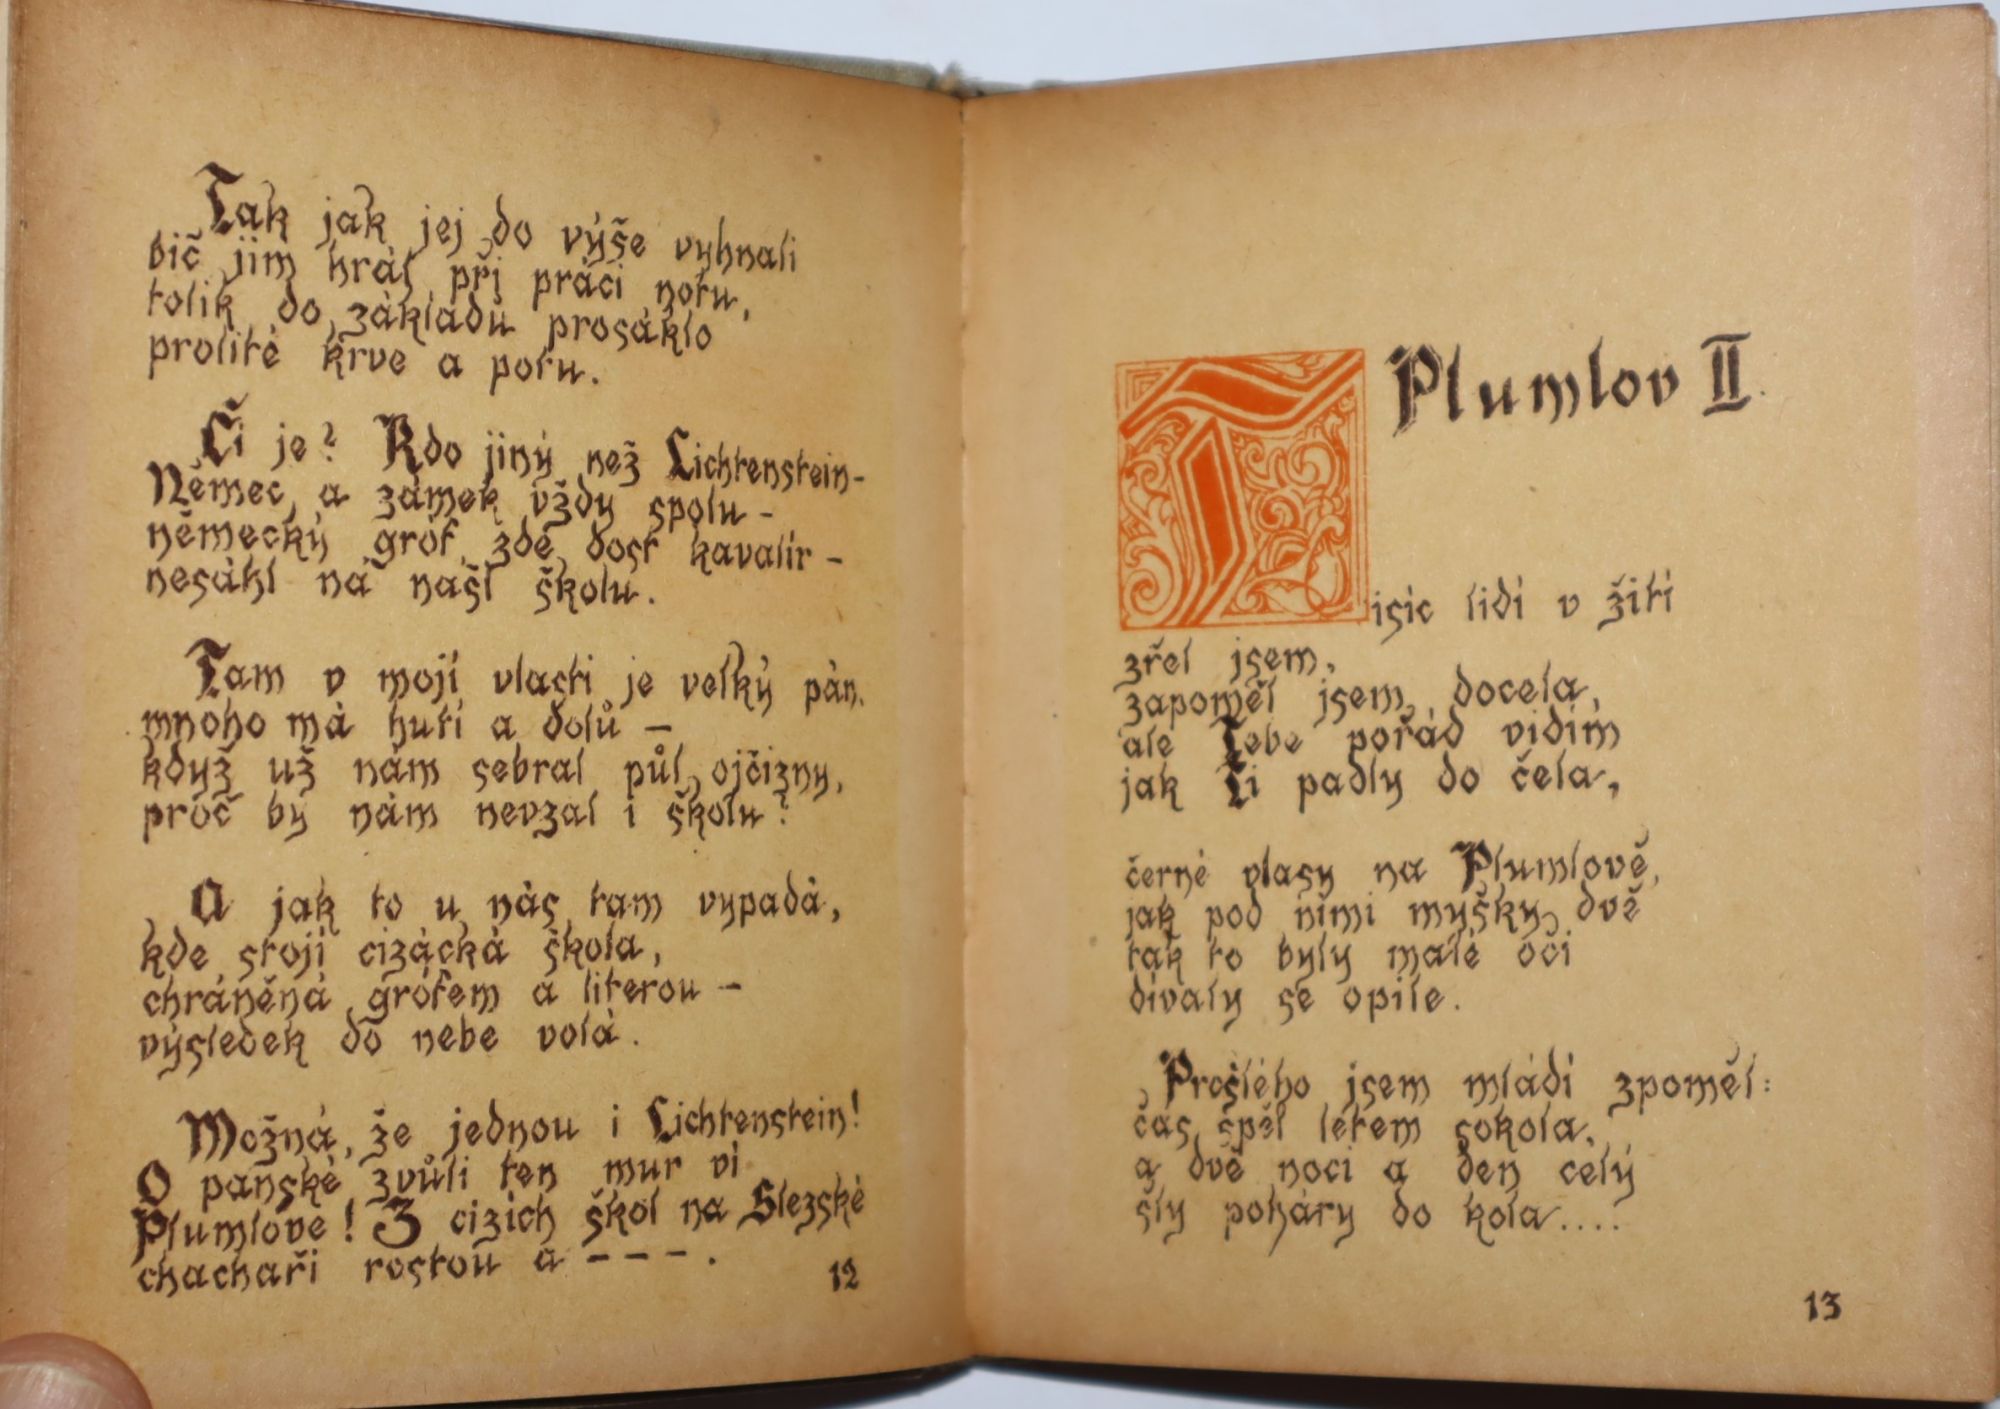 Tak jak jej do výše vyhnali
bič jim hrál při práci notu,
tolik do základů prosáklo
prolité krve a potu.
Čí je? Kdo jiný než Lichtenstein-
Němec a zámek vždy spolu -
německý gróf zde dost kavalír -
nesáhl na naší školu.
Tam v mojí vlasti je velký pán,
mnoho má hutí a dolů —
když už nám sebral půl ojčizny,
proč by nám nevzal i školu?
A jak to u nás tam vypadá,
kde stojí cizácká škola,
chráněná grófem a literou —
výsledek do nebe volá.
Možná, že jednou i Lichtenstein!
O panské zvůli ten mur ví
Plumlove! Z cizích škol na Slezské
chachaři rostou a - - - .
12
Plumlov II.
Tisíc lidí v žití
zřel jsem,
zapoměl jsem docela,
ale Tebe pořád vidím
jak Ti padly do čela,
černé vlasy na Plumlově,
jak pod nimi myšky dvě
tak to byly malé oči
dívaly se opile.
Prošlého jsem mládí zpoměl:
čas spěl letem sokola,
a dvě noci a den celý
šly poháry do kola....
13